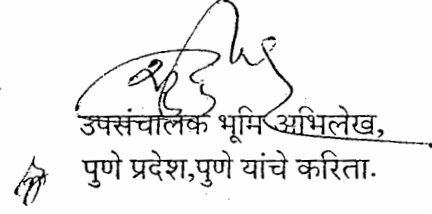 उपसंचालक भूमि अभिलेख,
पुणे प्रदेश,पुणे यांचे करिता.